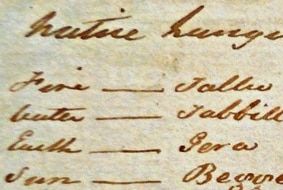 Native Langu
Fire — Tallu
Water — Tabbill
Earth — Gera
Sun —